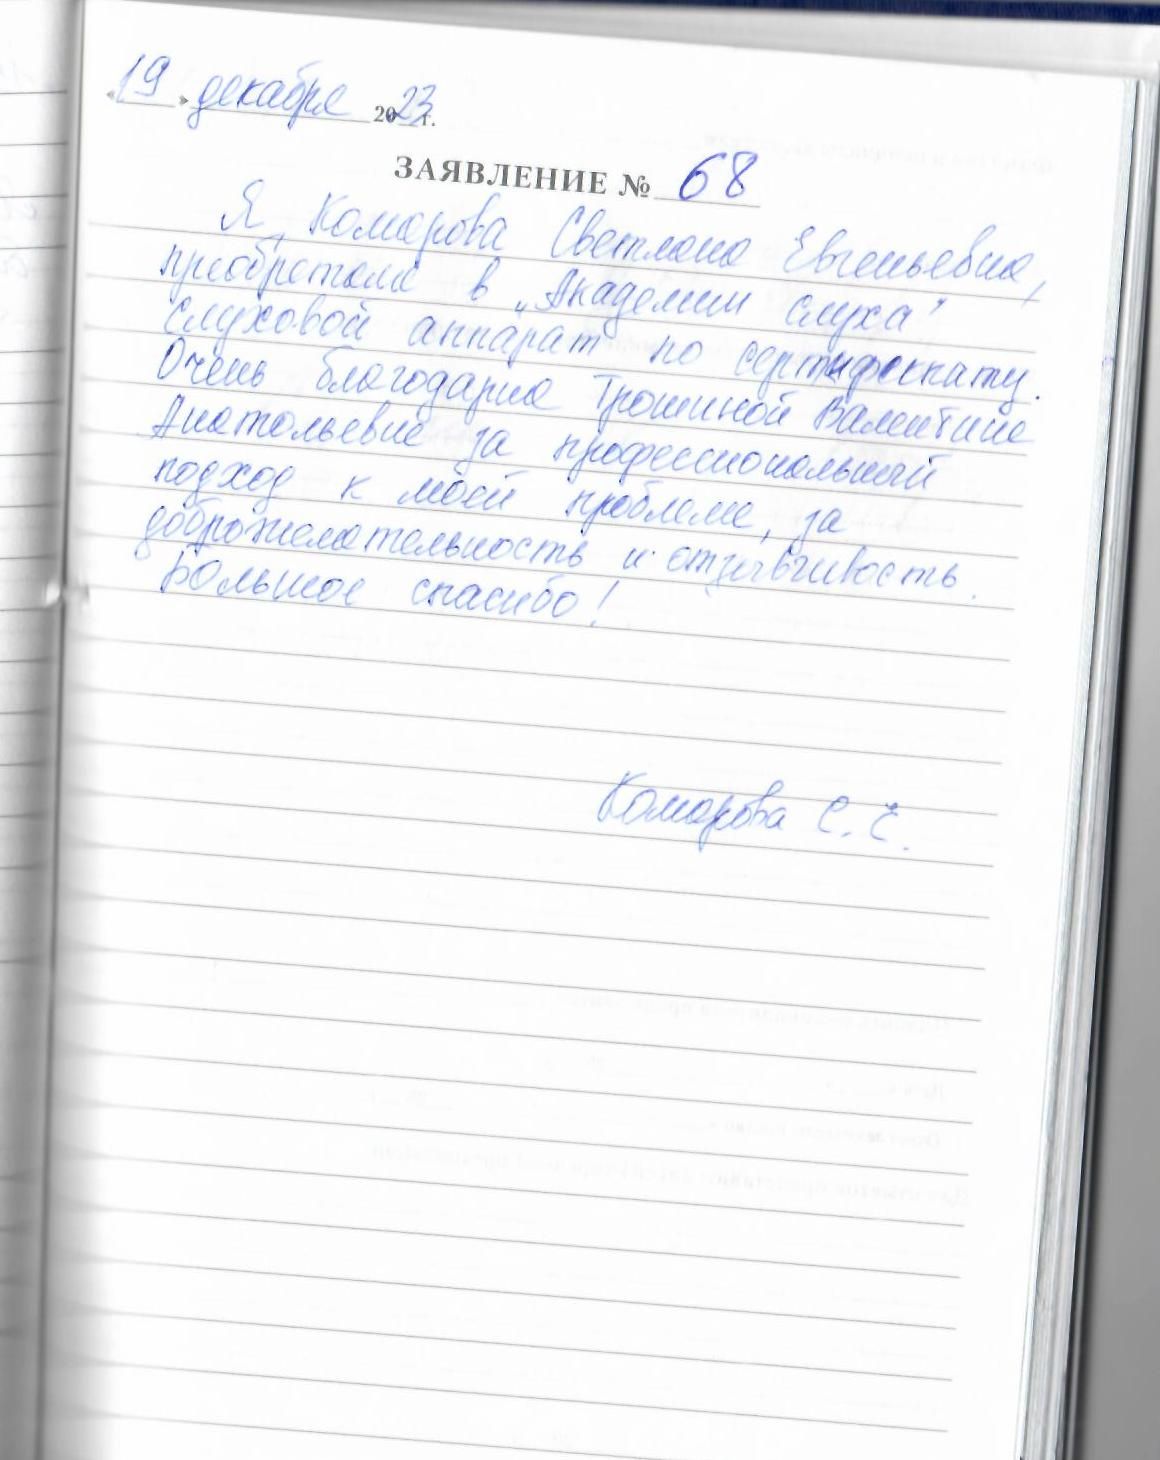 «19» декабря 2023 г.
ЗАЯВЛЕНИЕ № 68
Я, Комарова Светлана Евгеньевна,
приобретала в „Академии слуха"
слуховой аппарат по сертификату.
Очень благодарна Трошиной Валентине
Анатольевне за профессиональный
подход к моей проблеме, за
доброжелательность и отзывчивость.
Большое спасибо!
Комарова С. Е.